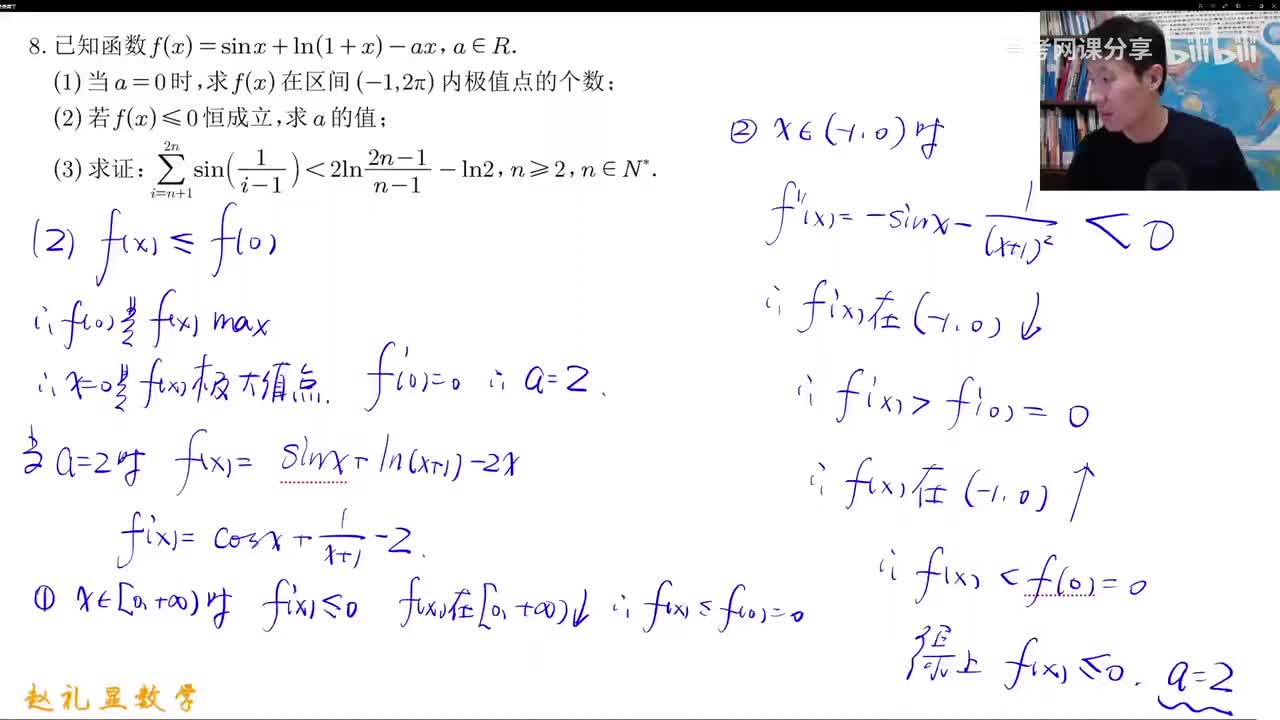 8. 已知函数 f(x) = sinx + ln(1+x) − ax, a ∈ R.
(1) 当 a = 0 时, 求 f(x) 在区间 (−1,2π) 内极值点的个数;
(2) 若 f(x) ⩽ 0 恒成立, 求 a 的值;
(3) 求证: ∑_{i=n+1}^{2n} sin(1/(i−1)) < 2ln (2n−1)/(n−1) − ln2, n ⩾ 2, n ∈ N*.
(2) f(x) ≤ f(0)
∴ f(0)是 f(x) max
∴ x=0是 f(x)极大值点. f'(0)=0 ∴ a=2.
当 a=2时 f(x)= sinx+ln(x+1)−2x
f'(x)= cosx + 1/(x+1) −2.
① x∈[0,+∞)时 f'(x)≤0 f(x)在[0,+∞)↓ ∴ f(x)≤f(0)=0
② x∈(-1,0)时
f''(x)= −sinx − 1/(x+1)² < 0
∴ f'(x)在(-1,0)↓
∴ f'(x)> f'(0)= 0
∴ f(x)在(-1,0)↑
∴ f(x)<f(0)=0
综上 f(x)≤0. a=2
考网课分享 bilibili
赵礼显数学